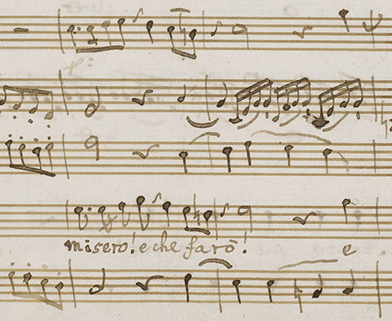 misero! e che farò! e